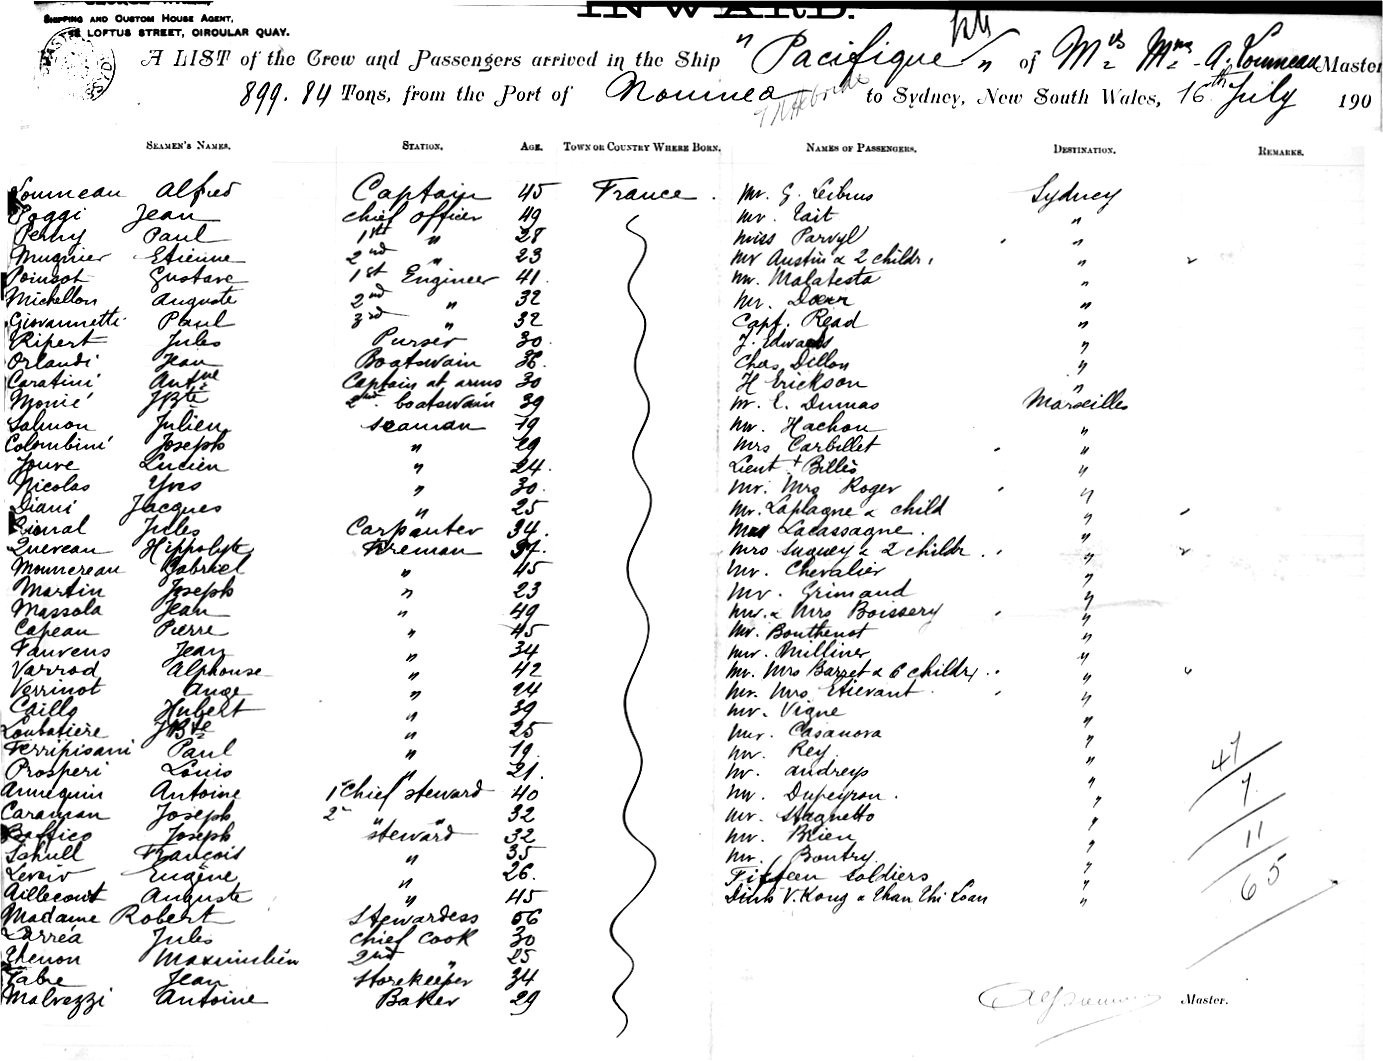 INWARD.
SHIPPING AND CUSTOM HOUSE AGENT,
LOFTUS STREET, CIRCULAR QUAY.
A LIST of the Crew and Passengers arrived in the Ship " Pacifique " of Mrs A. Louneau Master
899.84 Tons, from the Port of Noumea to Sydney, New South Wales, 16th July 190
SEAMEN'S NAMES. STATION. AGE. TOWN OR COUNTRY WHERE BORN. NAMES OF PASSENGERS. DESTINATION. REMARKS.
Louneau Alfred Captain 45 France. Mr. G. Leibius Sydney
Poggi Jean chief officer 49 Mr. Tait "
Perny Paul 1st " 28 Miss Parvyl "
Mugnier Etienne 2nd " 23 Mr Austin & 2 childr. "
Poinsot Gustave 1st Engineer 41. Mr. Malatesta "
Michellon Auguste 2nd " 32 Mr. Doerr "
Giovannetti Paul 3rd " 32 Capt. Read "
Ripert Jules Purser 30 J. Edwards "
Orlandi Jean Boatswain 36. Chas Dillon "
Caratini Antne Captain at arms 30 H Erickson "
Monié JBte 2nd boatswain 39 Mr. E. Dumas Marseilles
Salmon Julien seaman 19 Mr. Hachon "
Colombini Joseph " 29 Mrs Carbillet "
Jouve Lucien " 24. Lieut Billès "
Nicolas Yves " 30. Mr. Mrs Roger "
Diani Jacques " 25 Mr. Laplagne & child "
Jules Carpenter 34. Lacassagne. "
Quereau Hippolyte Fireman 37. Mrs Suquey & 2 childr. "
Mounereau Gabriel " 45 Mr. Chevalier "
Martin Joseph " 23 Mr. Grimaud "
Massola Jean " 49 Mr. & Mrs Boissery "
Capeau Pierre " 45 Mr. Bouthenot "
Taurens Jean " 34 Mr. Milliner "
Varrod Alphonse " 42 Mr. Mrs Barzet & 6 childr. "
Verrinot Ange " 24 Mr. Mrs Etievant "
Caillo Hubert " 39 Mr. Vigne "
Loubatière JBte " 25 Mr. Casanova "
Ferripisani Paul " 19. Mr. Rey "
Prosperi Louis " 21. Mr. Andreys "
Annequin Antoine 1st Chief steward 40 Mr. Dupeyron. "
Caraman Joseph 2 " " 32 Mr. Stagnetto "
Baffico Joseph steward 32 Mr. Brien "
Schull François " 35 Mr. Boutry "
Levoir Eugène " 26. Fifteen Soldiers "
Aillecourt Auguste " 45 Dinh V. Kong & Than Thi Loan "
Madame Robert Stewardess 56
Larréa Jules chief cook 30
Thenon Maximilien 2nd " 25
Fabre Jean Storekeeper 34
Malvezzi Antoine Baker 29
47
7
11
65
Master.